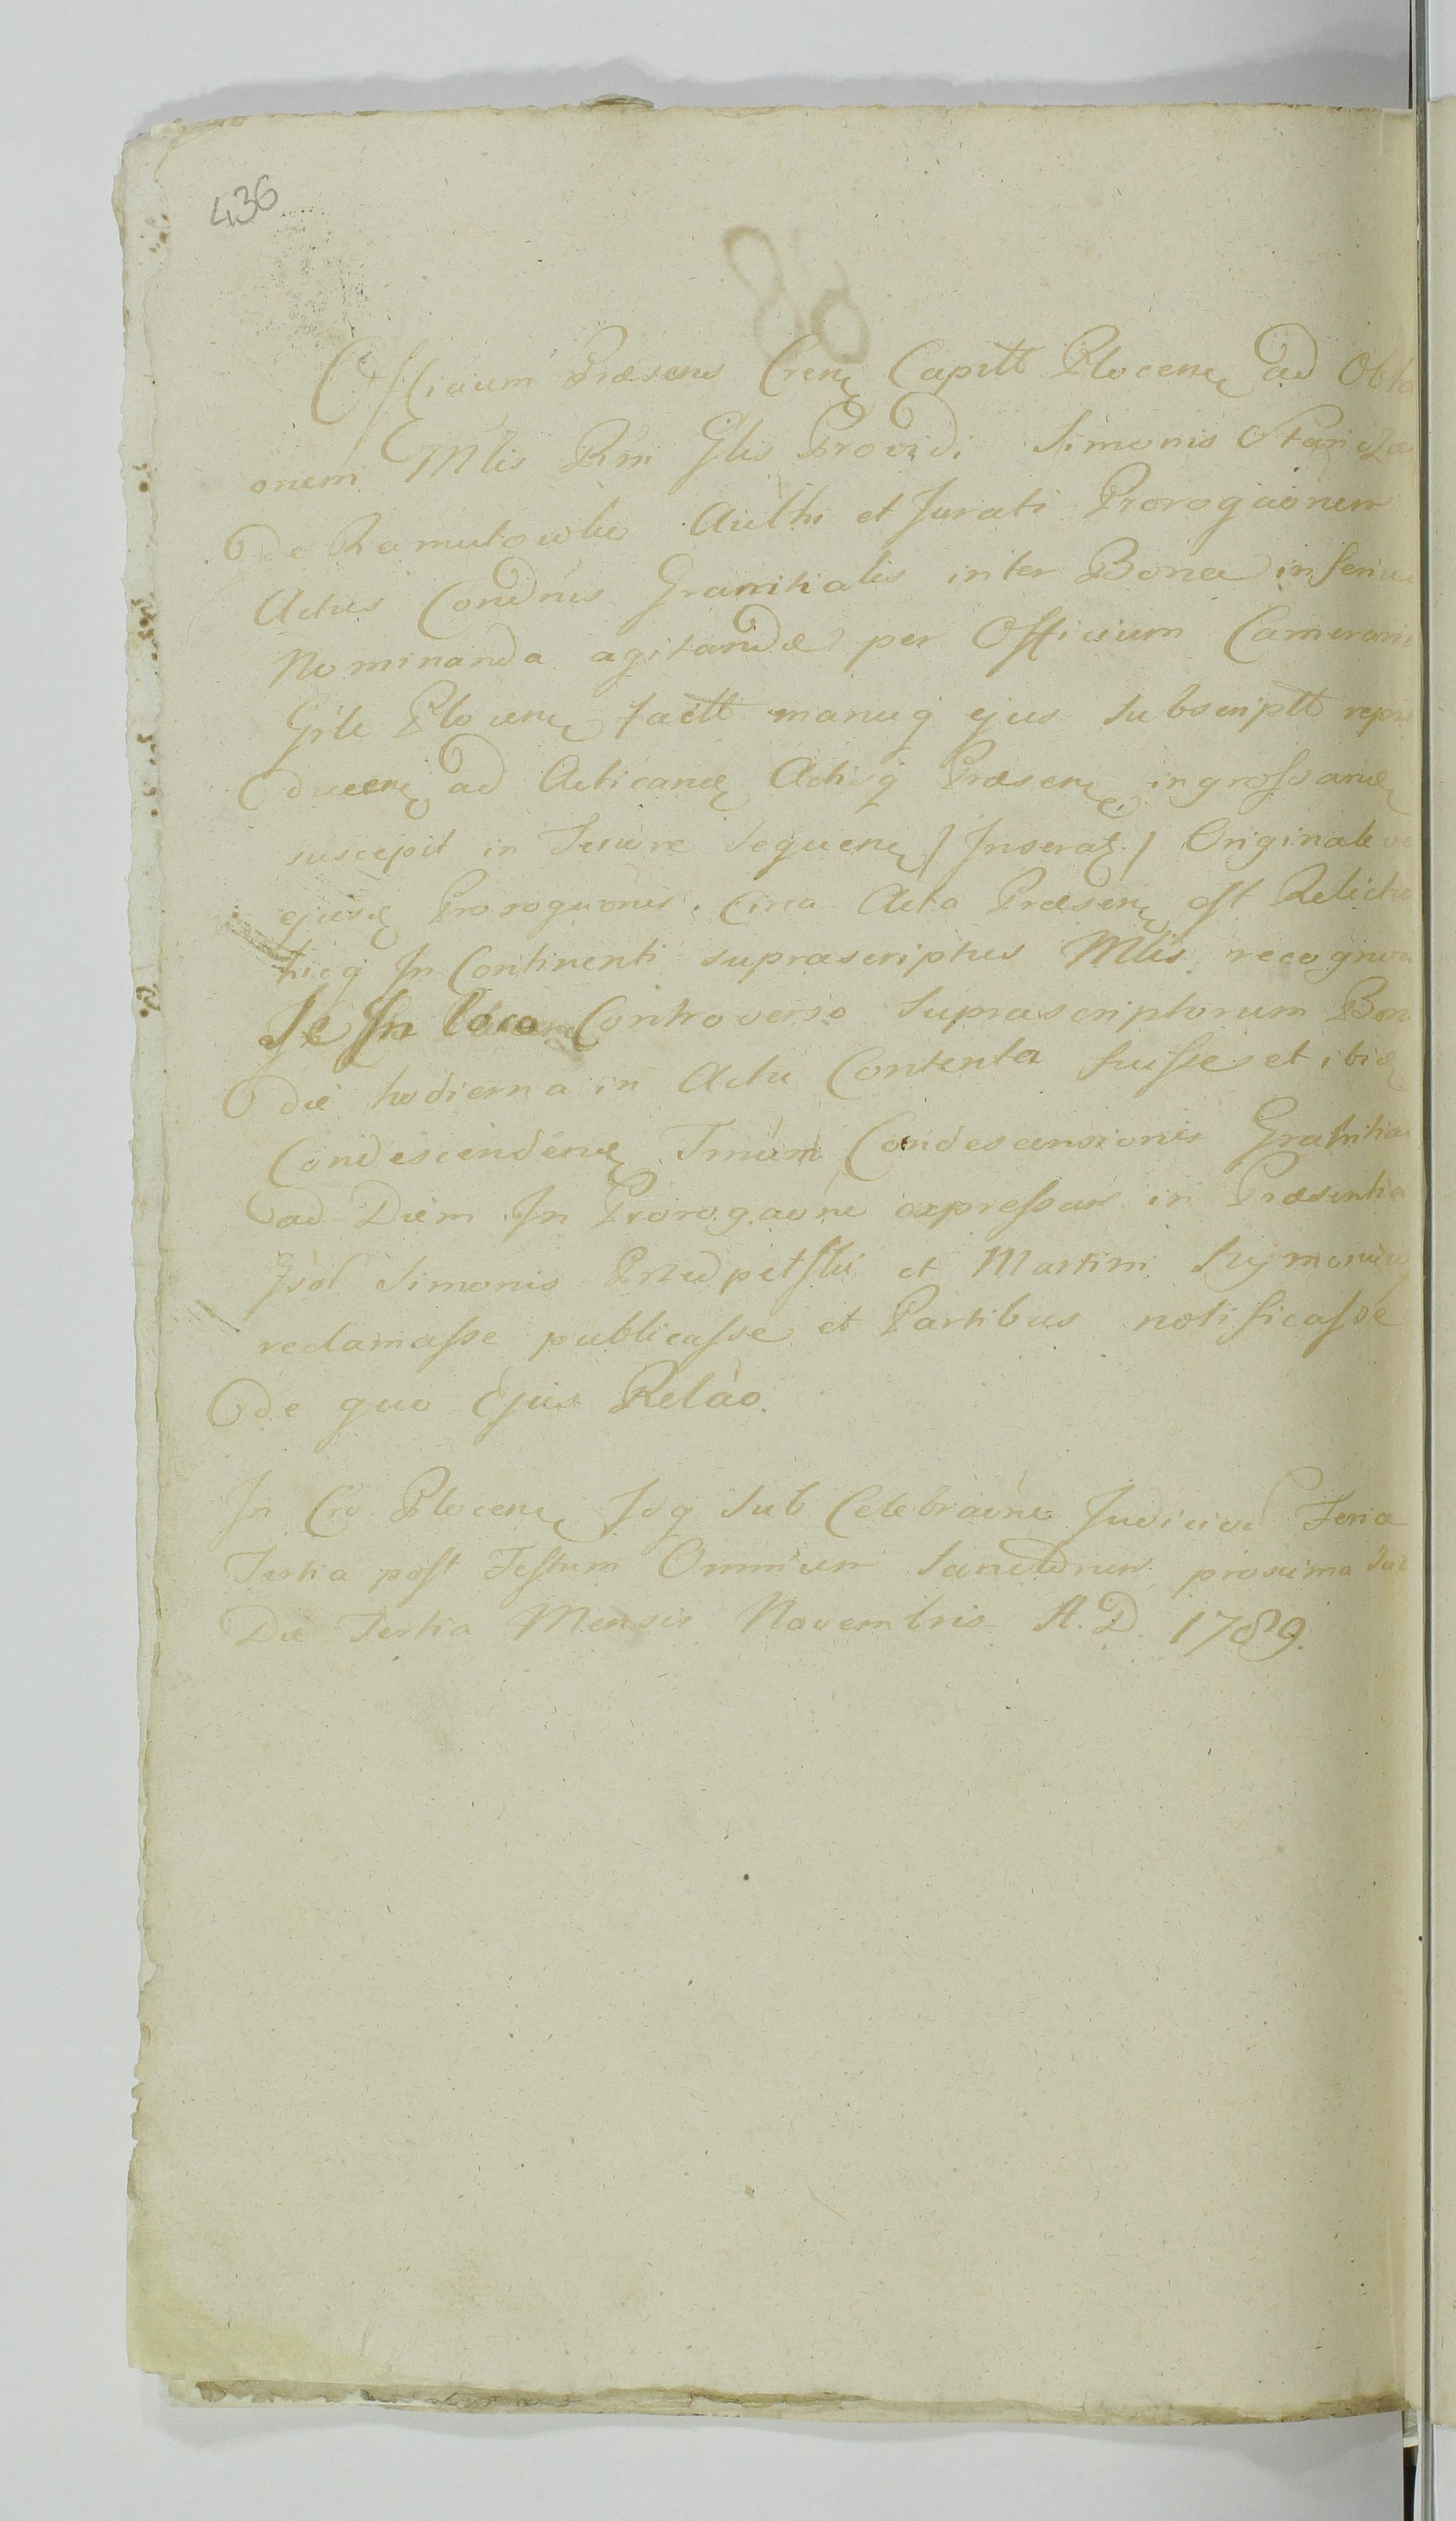 436
Officium Præsens Cren Capitt Plocen ad Obla
onem Mlis Rm Glis Providi Simonis
de Ramutowko Authi et Jurati Prorogaonem
Actus Condnis Granitialis inter Bona inferius
Nominanda agitandæ per Officium Camerarii
Grle Plocen factt manuq ejus Subscriptt repro
ducen ad Acticand Actisq Præsen ingrossand
suscepit in Tenore Sequen / Inserat. / Originale
ejusd Prorogaonis Circa Acta Præsen est Relictu
hicq In Continenti suprascriptus Mlis recognovi
Se In loco Controverso Suprascriptorum Bon
die hodierna in Actu Contenta fuisse et ibid
Condescenden Tmum Condescensionis Granitia
ad Diem In Prorogaone expressum in Præsentia
Simonis et Martini
reclamasse publicasse et Partibus notificasse
de quo Ejus Relao.
In Cro Plocen Idq Sub Celebraone Judicior Feria
Tertia post Festum Omnium Sanctorum proxima
Die Tertia Mensis Novembris A. D. 1789.